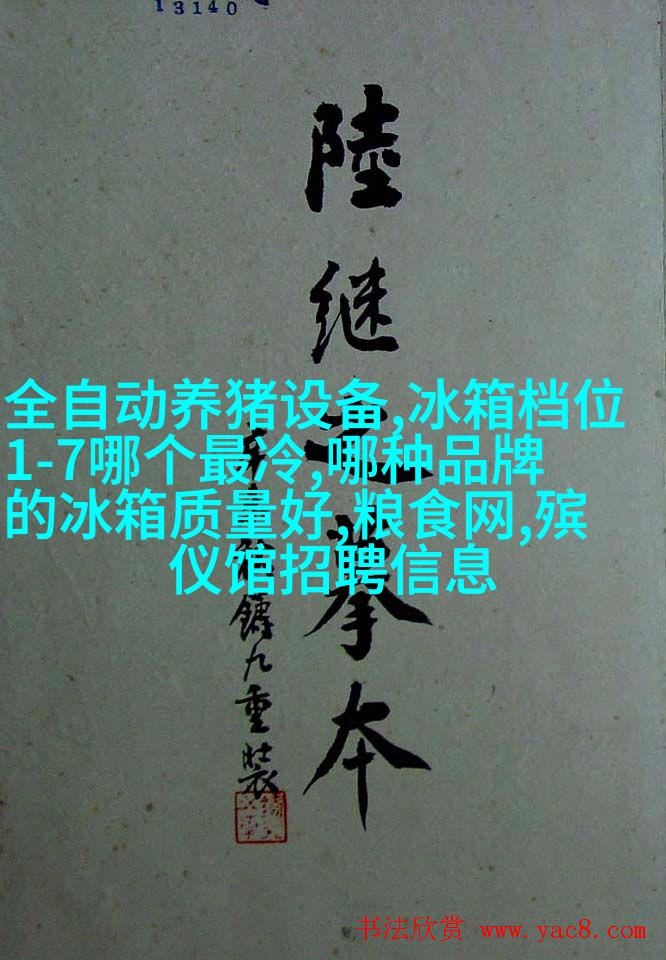 13140
陸継之摹本
鑄九重裝
全自动养猪设备,冰箱档位
1-7哪个最冷,哪种品牌
的冰箱质量好,粮食网,殡
仪馆招聘信息
书法欣赏 www.yac8.com